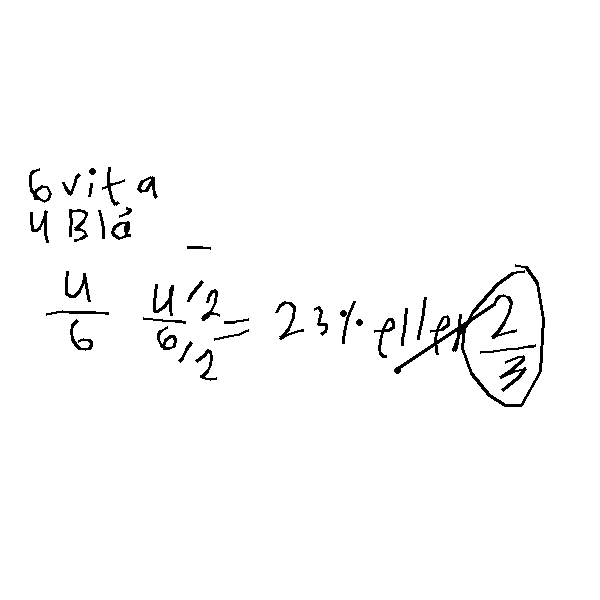 6 vita
4 Blå
4/6 4/2/6/2 = 23% eller 2/3